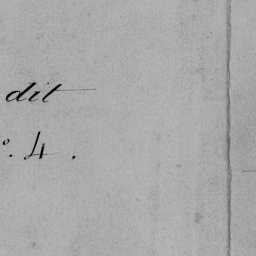 dit
º. 4.